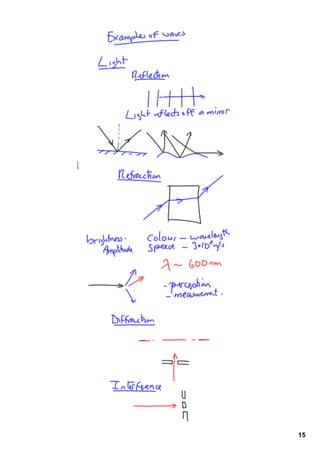 Examples of waves
Light
Reflection
Light reflects off a mirror
Refraction
brightness - Colour - wavelength
Amplitude Speed - 3×10⁸ m/s
λ ~ 600nm
- perception
- measurement.
Diffraction
Interference
15